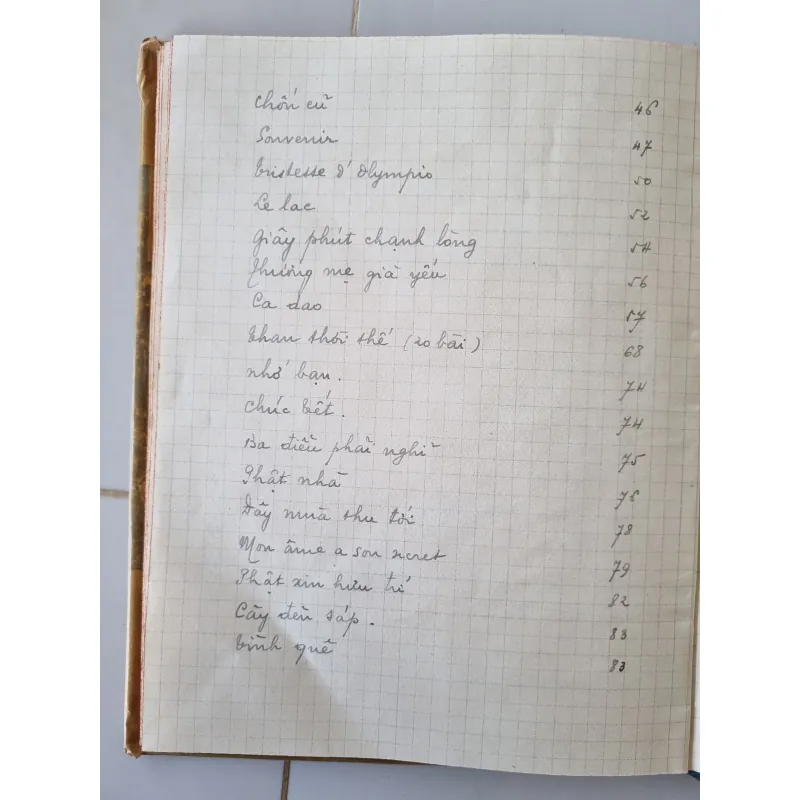 Chốn cũ 46
Souvenir 47
Tristesse d'Olympio 50
Le lac 52
Giây phút chạnh lòng 54
Thương mẹ già yếu 56
Ca dao 57
Than thời thế (20 bài) 68
nhớ bạn. 74
Chúc Tết. 74
Ba điều phải nghĩ 75
Phật nhà 78
Đây mùa thu tới 78
Mon âme a son secret 79
Phật xin hưu trí 82
Cây đèn sáp. 83
Tình quê 83